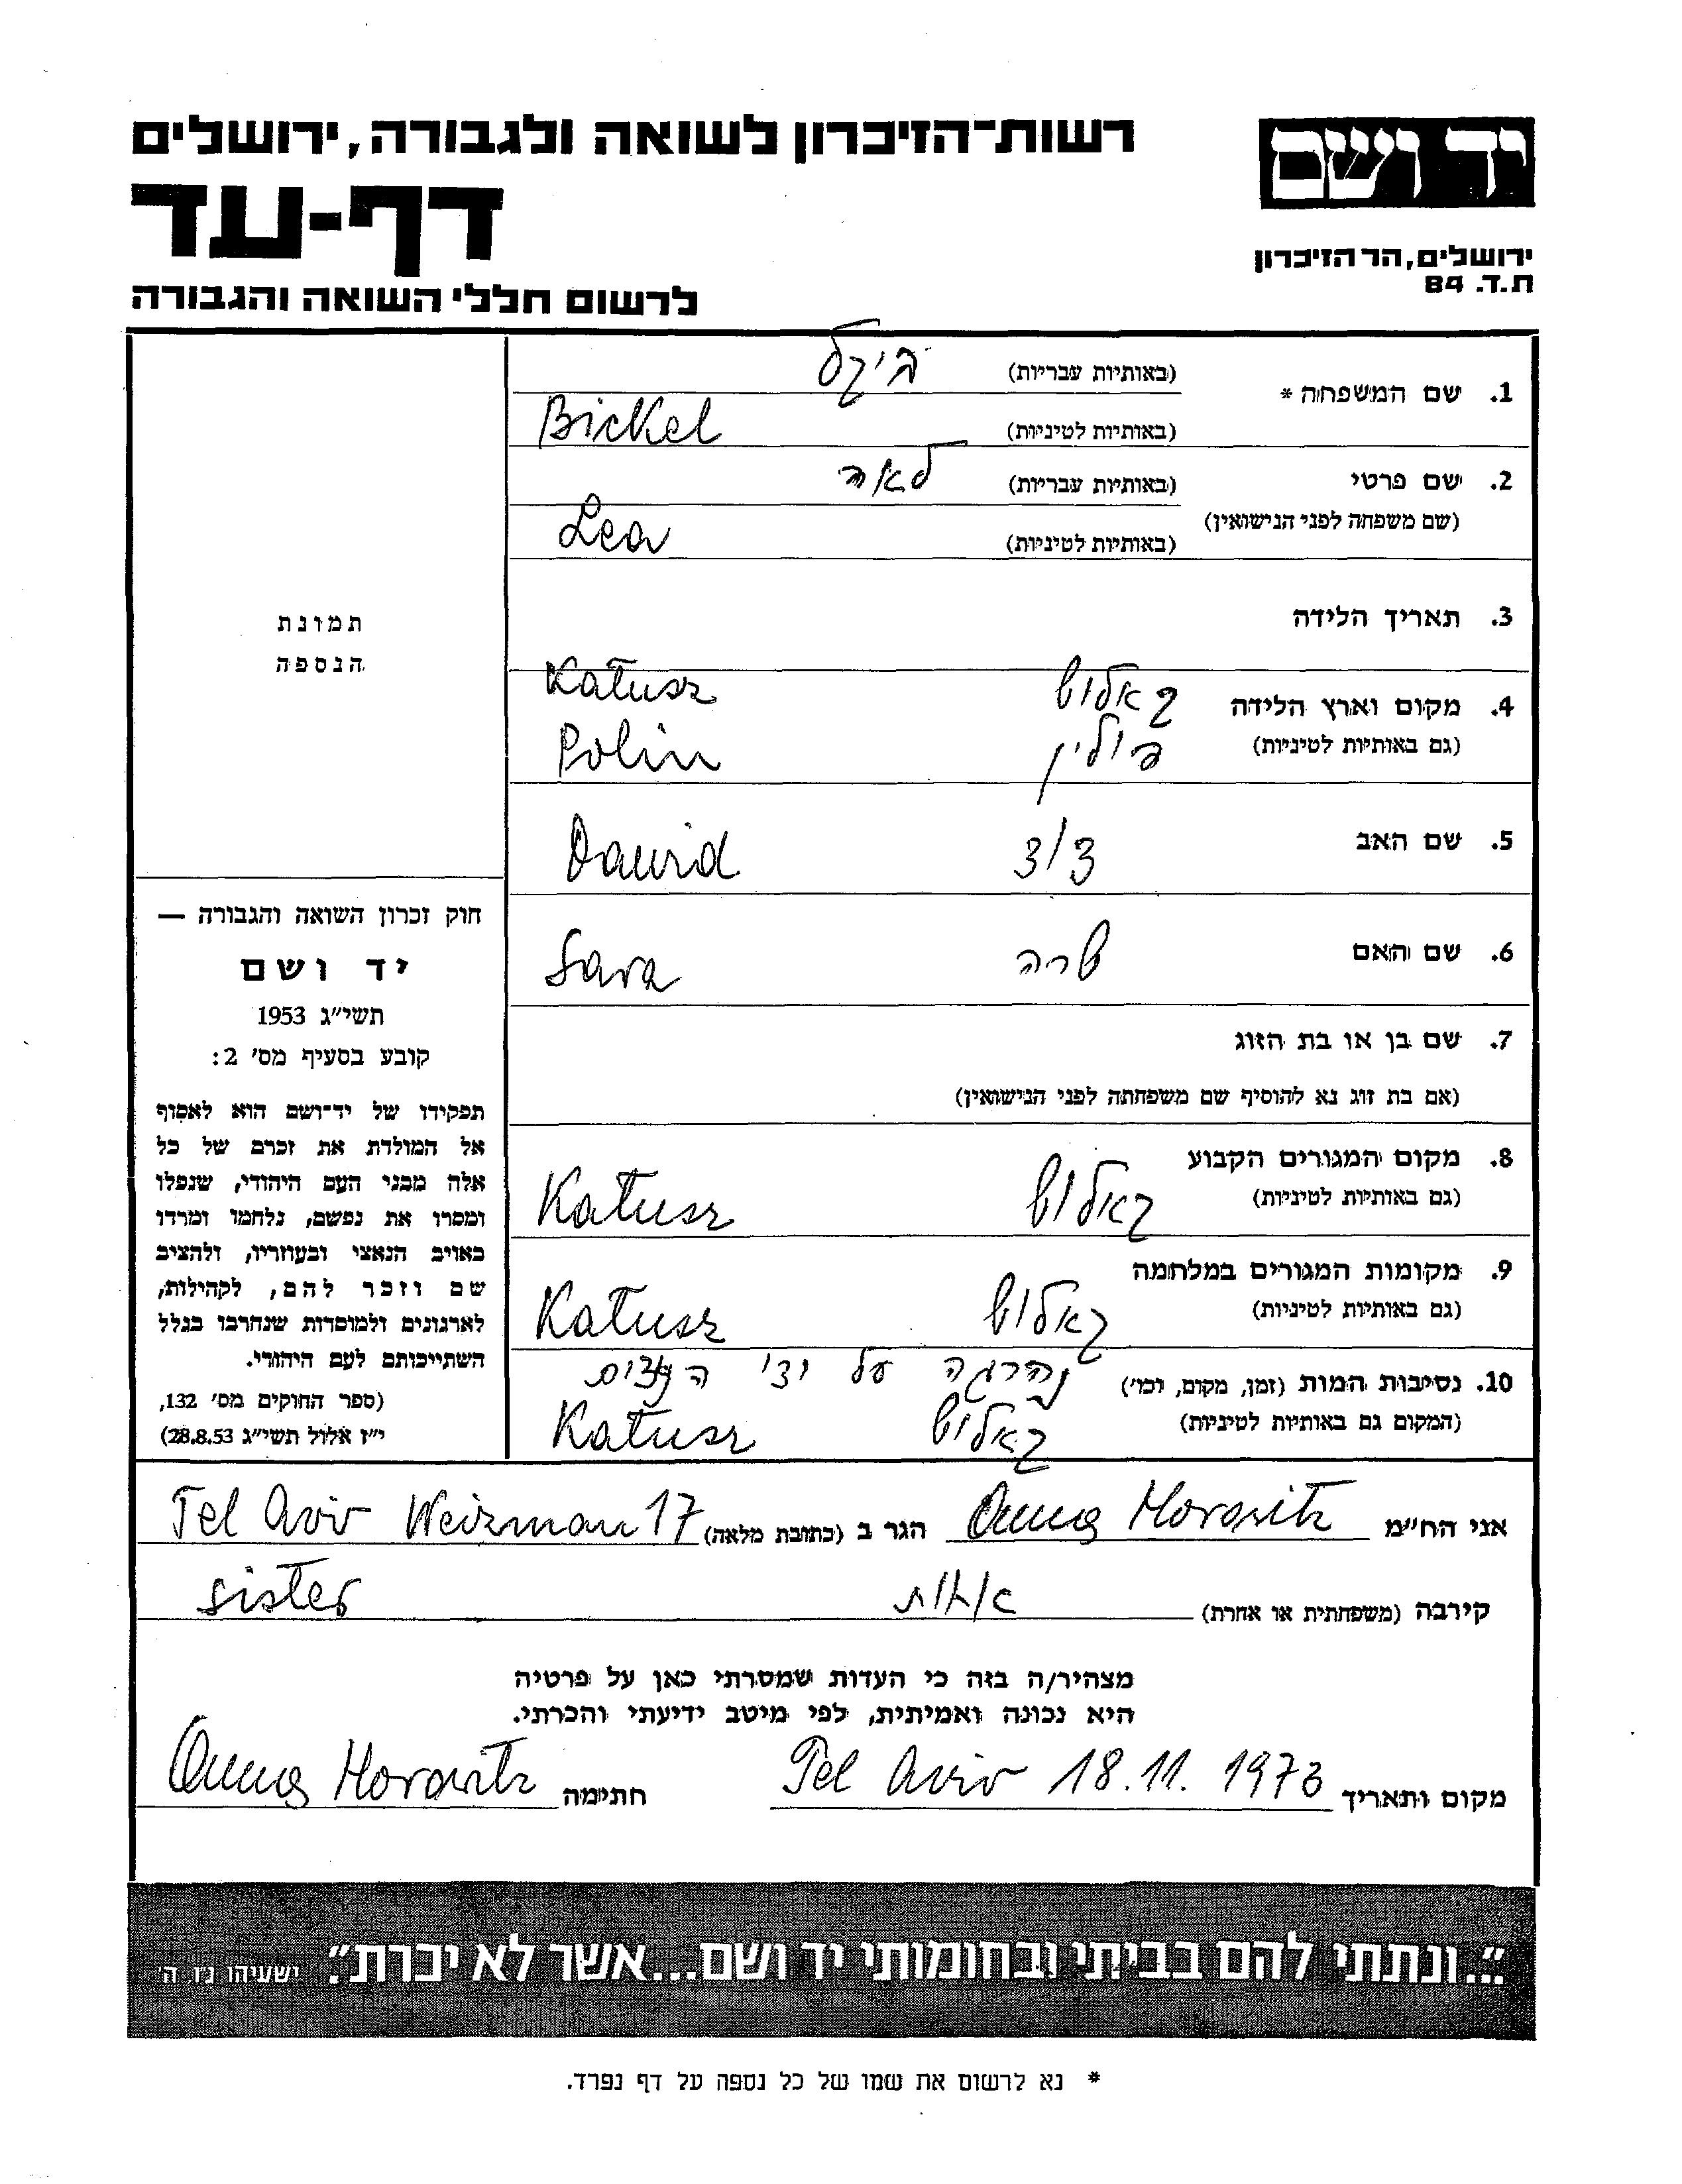 רשות־הזיכרון לשואה ולגבורה, ירושלים
יד ושם
דף-עד
ירושלים, הר הזיכרון
ת.ד. 84
לרשום חללי השואה והגבורה
1. שם המשפחה * (באותיות עבריות) ביקל
(באותיות לטיניות) Bickel
2. שם פרטי (באותיות עבריות) לאה
(שם משפחה לפני הנישואין)
(באותיות לטיניות) Lea
3. תאריך הלידה
4. מקום וארץ הלידה קאלוש Kałusz
(גם באותיות לטיניות) פולין Polin
5. שם האב דוד Dawid
6. שם האם שרה Sara
7. שם בן או בת הזוג
(אם בת זוג נא להוסיף שם משפחתה לפני הנישואין)
8. מקום המגורים הקבוע
(גם באותיות לטיניות) קאלוש Kałusz
9. מקומות המגורים במלחמה
(גם באותיות לטיניות) קאלוש Kałusz
10. נסיבות המות (זמן, מקום, וכו') נהרגה על ידי הנצים
(המקום גם באותיות לטיניות) קאלוש Kałusz
תמונת
הנספה
חוק זכרון השואה והגבורה —
יד ושם
תשי"ג 1953
קובע בסעיף מס' 2:
תפקידו של יד־ושם הוא לאסוף
אל המולדת את זכרם של כל
אלה מבני העם היהודי, שנפלו
ומסרו את נפשם, נלחמו ומרדו
באויב הנאצי ובעוזריו, ולהציב
שם וזכר להם, לקהילות,
לארגונים ולמוסדות שנחרבו בגלל
השתייכותם לעם היהודי.
(ספר החוקים מס' 132,
י"ז אלול תשי"ג 28.8.53)
אני הח"מ Anna Horowitz הגר ב (כתובת מלאה) Tel Aviv Weizman 17
קירבה (משפחתית או אחרת) אחות sister
מצהיר/ה בזה כי העדות שמסרתי כאן על פרטיה
היא נכונה ואמיתית, לפי מיטב ידיעתי והכרתי.
מקום ותאריך Tel Aviv 18.11.1973 חתימה Anna Horowitz
"...ונתתי להם בביתי ובחומותי יד ושם...אשר לא יכרת". ישעיהו נ"ו ה'
* נא לרשום את שמו של כל נספה על דף נפרד.